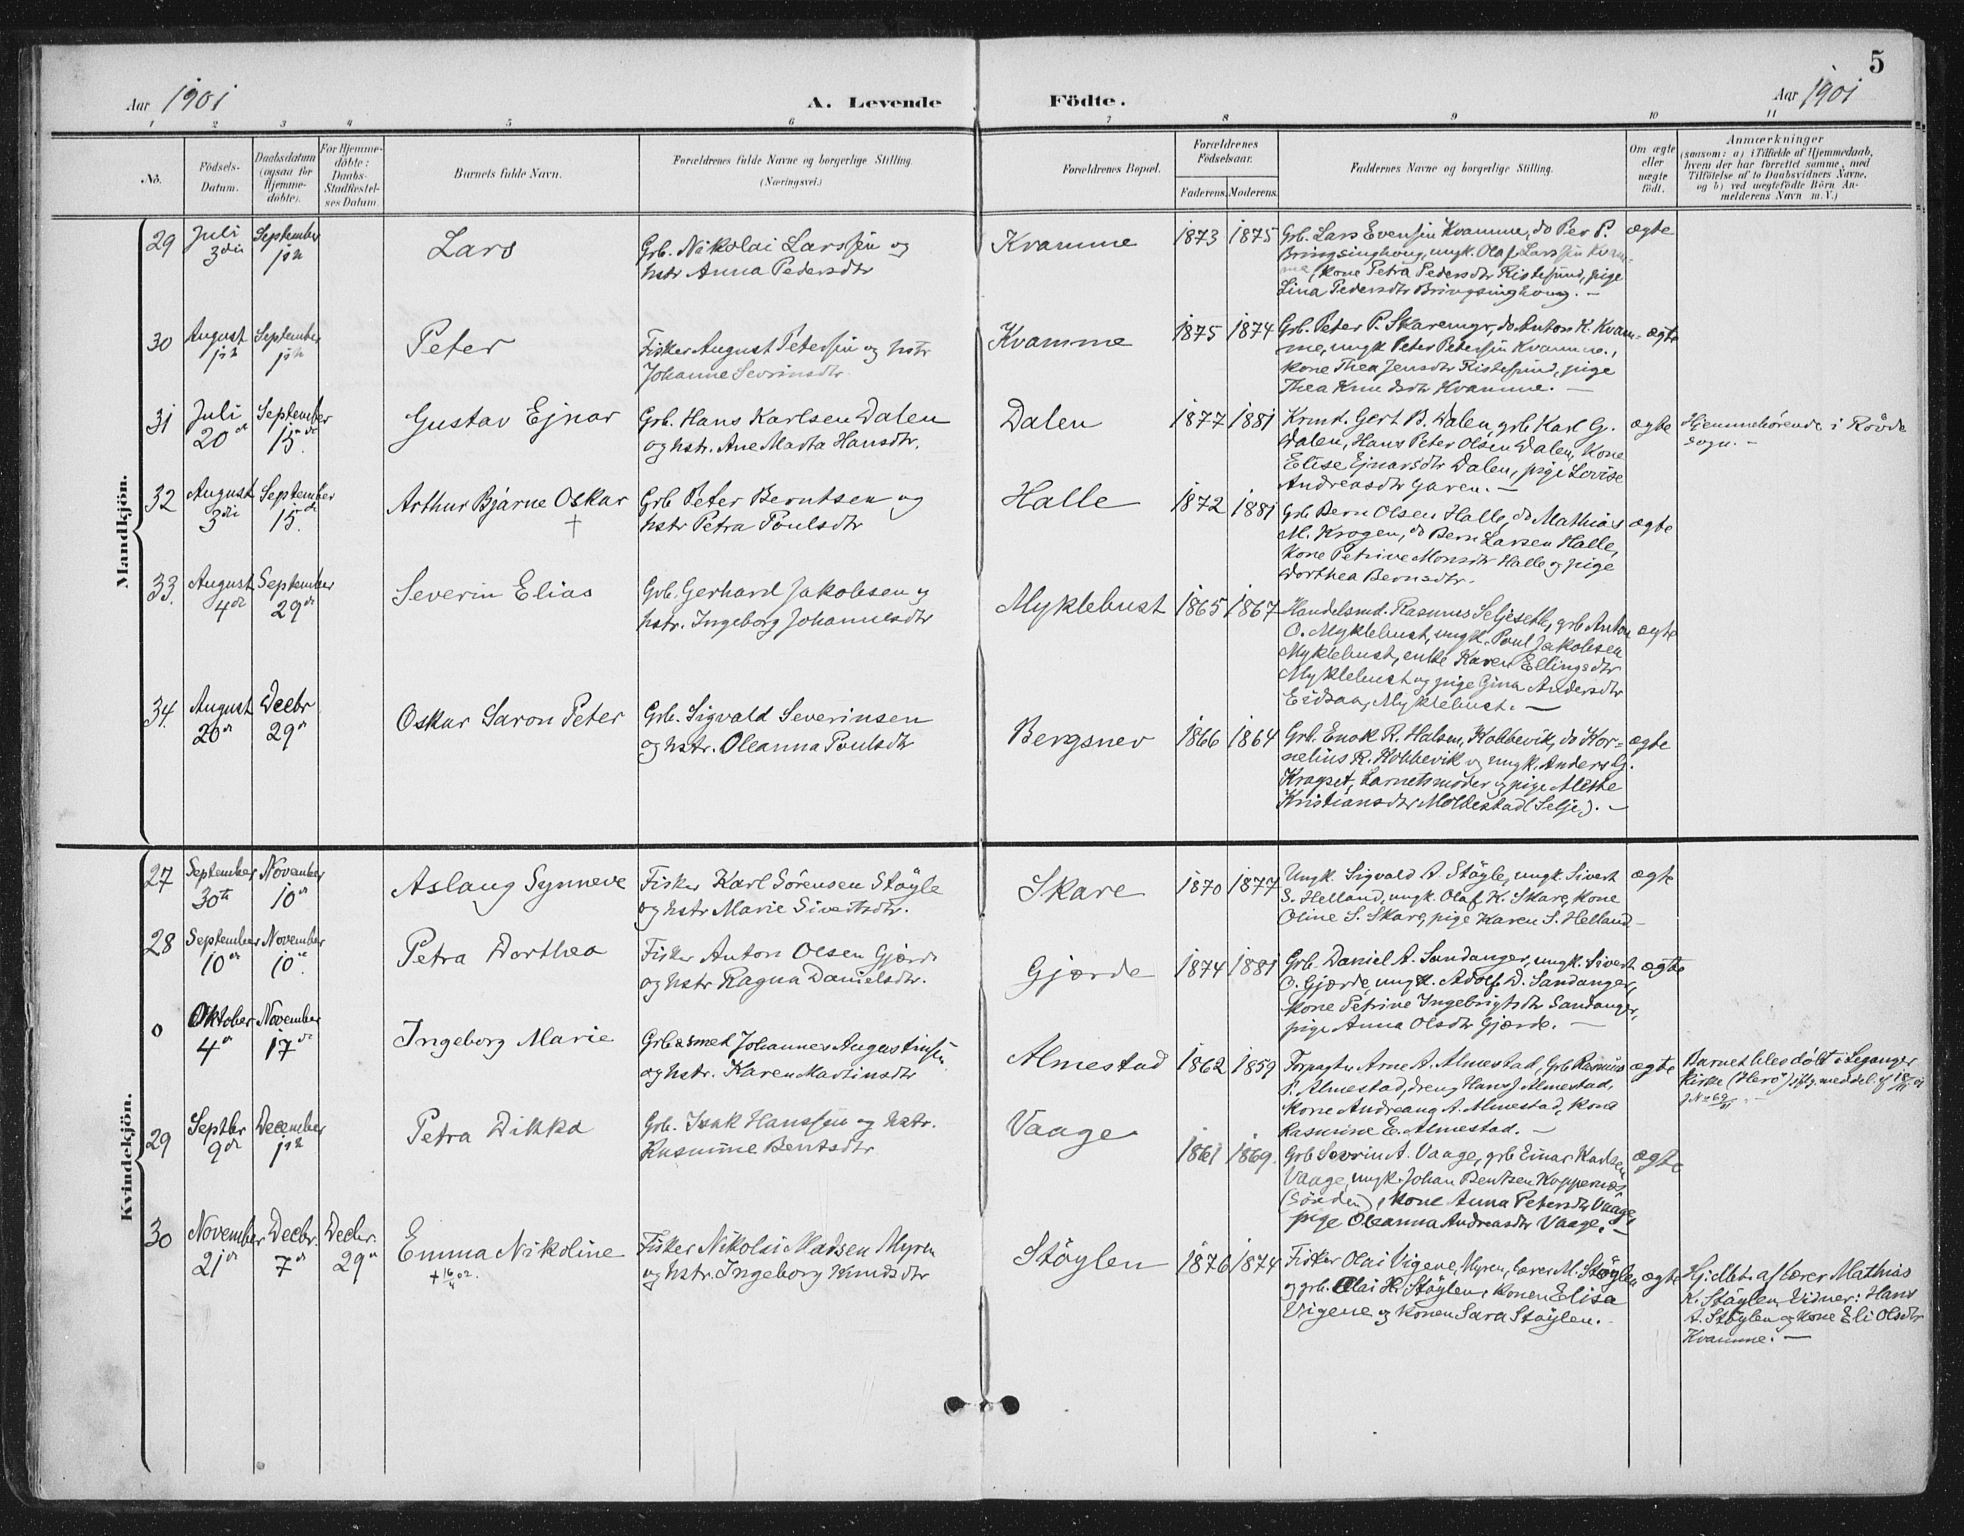 5
Aar 1901
A. Levende
Födte.
Aar 1901
1 2 3 4 5 6 7 8 9 10 11
No.
Födsels-
Datum.
Daabsdatum
(ogsaa for
Hjemme-
döbte).
For Hjemme-
döbte:
Daabs-
Stadfæstel-
ses Datum.
Barnets fulde Navn.
Forældrenes fulde Navne og borgerlige Stilling.
(Næringsvei.)
Forældrenes Bopæl.
Forældrenes
Födselsaar.
Faderens. Moderens.
Faddernes Navne og borgerlige Stilling.
Om ægte
eller
uægte
födt.
Anmærkninger
(saasom: a) i Tilfælde af Hjemmedaab,
hvem der har forrettet samme, med
Tilföielse af to Daabsvidners Navne,
og b) ved uægtefödte Börn An-
melderens Navn m. V.)
Mandkjön.
29 Juli September
3die 1ste
Lars
Grb. Nikolai Larssen og
hstr Anna Pedersdtr
Kvamme
1873 1875
Grb. Lars Evensen Kvamme, do Per P.
Bringsinghaug, ungk. Olaf Larssen Kvam-
me, kone Petra Pedersdtr Ristesund, pige
Lina Pedersdtr Bringsinghaug. —
ægte
30 August September
Peter
Fisker August Petersen og hstr
Johanne Sevrinsdtr.
Kvamme
1875 1874
Grb. Peter P. Skaremyr, do Anton K. Kvam-
me, ungk Peter Petersen Kvamme,
kone Thea Jensdtr Ristesund, pige
Thea Knudsdtr Kvamme. —
ægte
31 Juli September
20de 15de
Gustav Ejnar
Grb. Hans Karlsen Dalen
og hstr. Ane Marta Hansdtr.
Dalen
1877 1881
Krmd. Gert B. Dalen, grb Karl G.
Dalen, Hans Peter Olsen Dalen, Kone
Elise Ejnarsdtr Dalen, pige Lovise
Andreasdtr Garen. —
ægte
Hjemmehörende i Rövde
sogn. —
32 August September
3die 15de
Arthur Bjarne Oskar
†
Grb Peter Berntsen og
hstr Petra Poulsdtr
Halle
1872 1881
Grb Bern Olsen Halle, do Mathias
M. Krogen, do Bern Larsen Halle,
Kone Petrine Monsdtr Halle og pige
Dorthea Bernsdtr.
ægte
33. August September
4de 29de
Severin Elias
Grb. Gerhard Jakobsen og
hstr. Ingeborg Johannesdtr
Myklebust
1865 1867
Handelsmd. Rasmus Seljeseth, grb Anton
O. Myklebust, ungk. Poul Jakobsen
Myklebust, enke Karen Ellingsdtr
Myklebust og pige Gina Andersdtr
Eidsaa, Myklebust. —
ægte
34. August Decbr
20de 29de
Oskar Saron Peter
Grb. Sigvald Severinsen
og hstr. Oleanna Poulsdtr
Bergsnev
1866 1864
Grb. Enok R. Halsen, Kobbevik, do Kor-
nelius R. Kobbevik og ungk. Anders G.
Kragset, barnets moder og pige Alette
Kristiansdtr Moldestad (Selje). —
ægte
Kvindekjön.
27 September November
30te 10de
Aslaug Synneve
Fisker Karl Sörensen Støyle
og hstr Marie Sivertsdtr.
Skare
1870 1877
Ungk. Sigvald A. Støyle, ungk. Sivert
S. Helland, ungk. Olaf K. Skare, kone
Oline S. Skare, pige Karen S. Helland —
ægte
28 September November
10de 10de
Petra Dorthea
Fisker Anton Olsen Gjærde
og hstr Ragna Danielsdtr.
Gjærde
1874 1881
Grb. Daniel A. Sandanger, ungk. Sivert
O. Gjærde, ungk. Adolf D. Sandanger,
Kone Petrine Ingebrigtsdtr Sandanger,
pige Anna Olsdtr Gjærde. —
ægte
0 Oktober November
4de 17de
Ingeborg Marie
Grb &amp; smed Johannes Augustinsen
og hstr. Karen Martinsdtr
Almestad
1862 1859
Forpagter Arne A. Almestad, Grb Rasmus
Almestad, dreng Hans J. Almestad,
Kone Andreana A. Almestad, Kone
Rasmine E. Almestad. —
ægte
Barnet blev døbt i Leganger
kirke (Herö)
29 Septbr December
9de 1ste
Petra Rikka
Grb. Isak Hanssen og hstr.
Rasmine Bentsdtr
Vaage
1861 1869.
Grb Sevrin A. Vaage, grb Einar Karlsen
Vaage, ungk. Johan Bentsen Koppernæs
(Sönden), Kone Anna Petersdtr Vaage,
pige Oleanna Andreasdtr Vaage. —
ægte
30 November Decbr. Decbr.
21de 7de 29de
Emma Nikoline
† 16/4 02.
Fisker Nikolai Madsen Myren
og hstr. Ingeborg Knudsdtr
Støylen
1876 1874
Fisker Olai Vigene, Myren, lærer M. Støylen,
og grb. Olai H. Støylen, Konen Elisa
Vigene og Konen Sara Støylen.
ægte
Hjdbt. af lærer Mathias
K. Støylen, Vidner: Hans
A. Støylen og Kone Eli Olsdtr
Kvamme. —